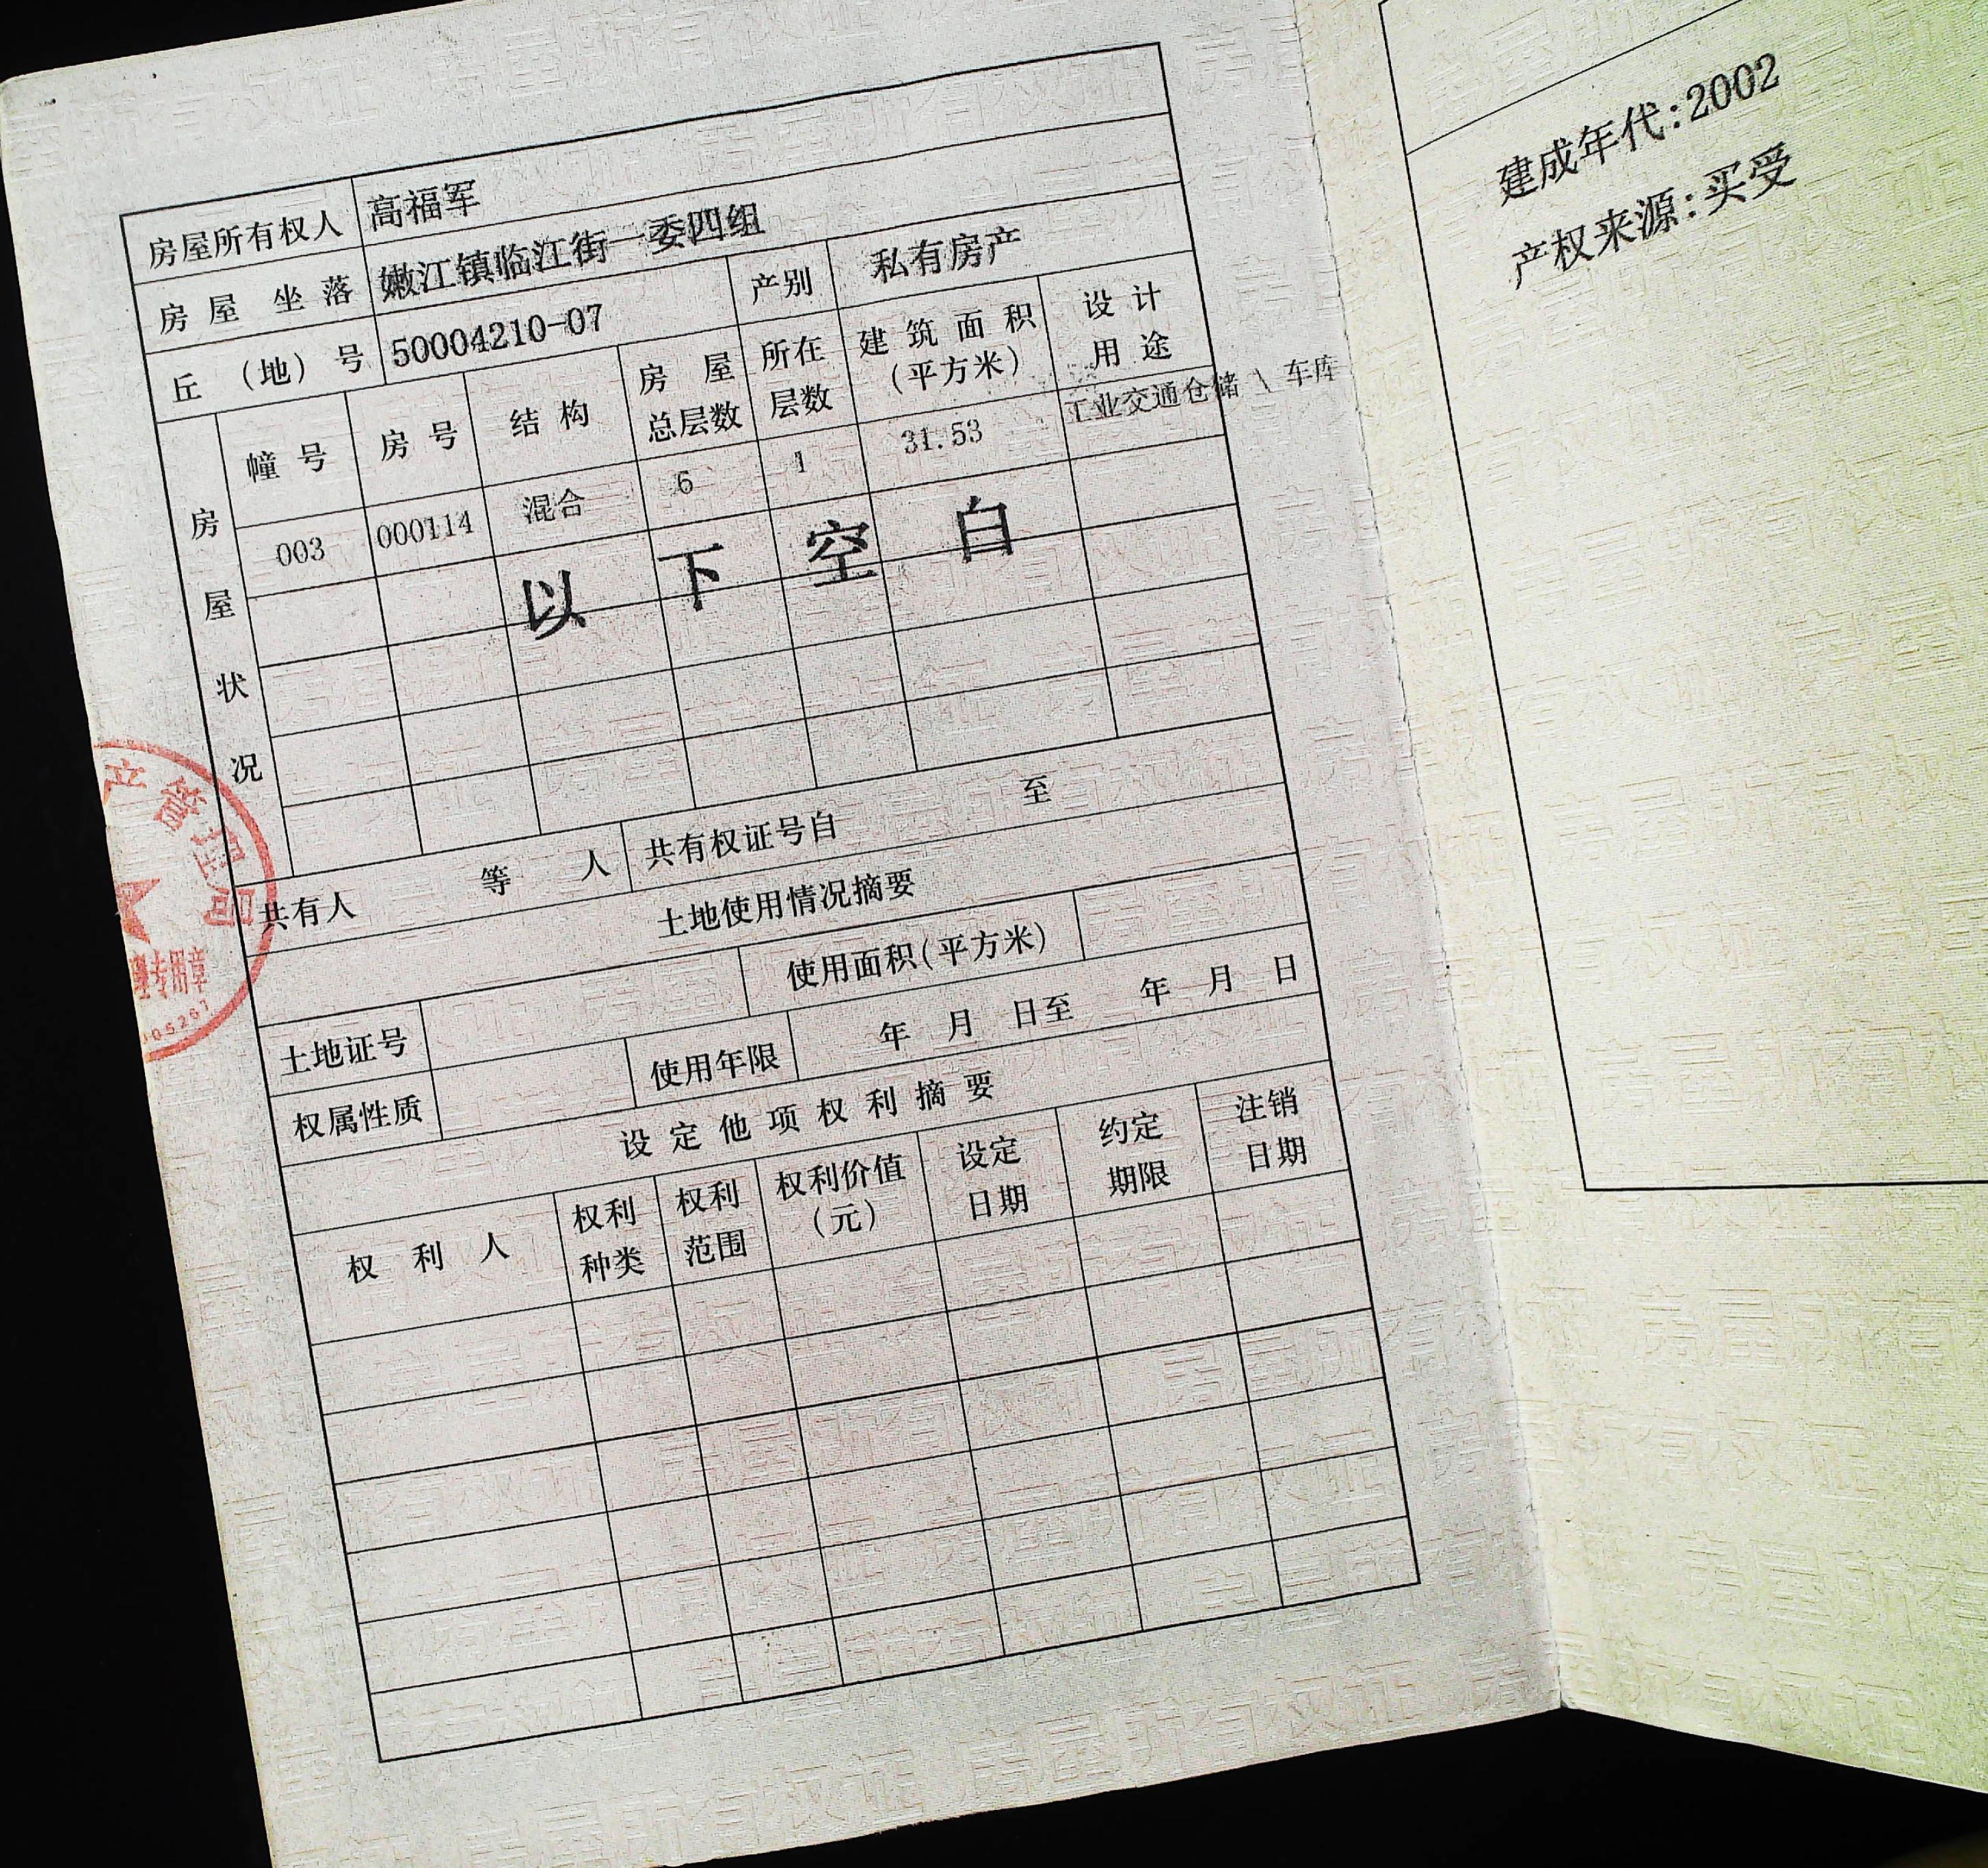 房屋所有权人 高福军
房屋坐落 嫩江镇临江街一委四组
丘（地）号 50004210-07 产别 私有房产
房屋状况
幢号 房号 结构 房屋总层数 所在层数 建筑面积（平方米） 设计用途
003 000114 混合 6 1 31.53 工业交通仓储 \ 车库
以下空白
共有人 等 人 共有权证号自 至
土地使用情况摘要
土地证号 使用面积(平方米)
权属性质 使用年限 年 月 日至 年 月 日
设定他项权利摘要
权利人 权利种类 权利范围 权利价值（元） 设定日期 约定期限 注销日期
产管理局
专用章
05267
建成年代:2002
产权来源:买受